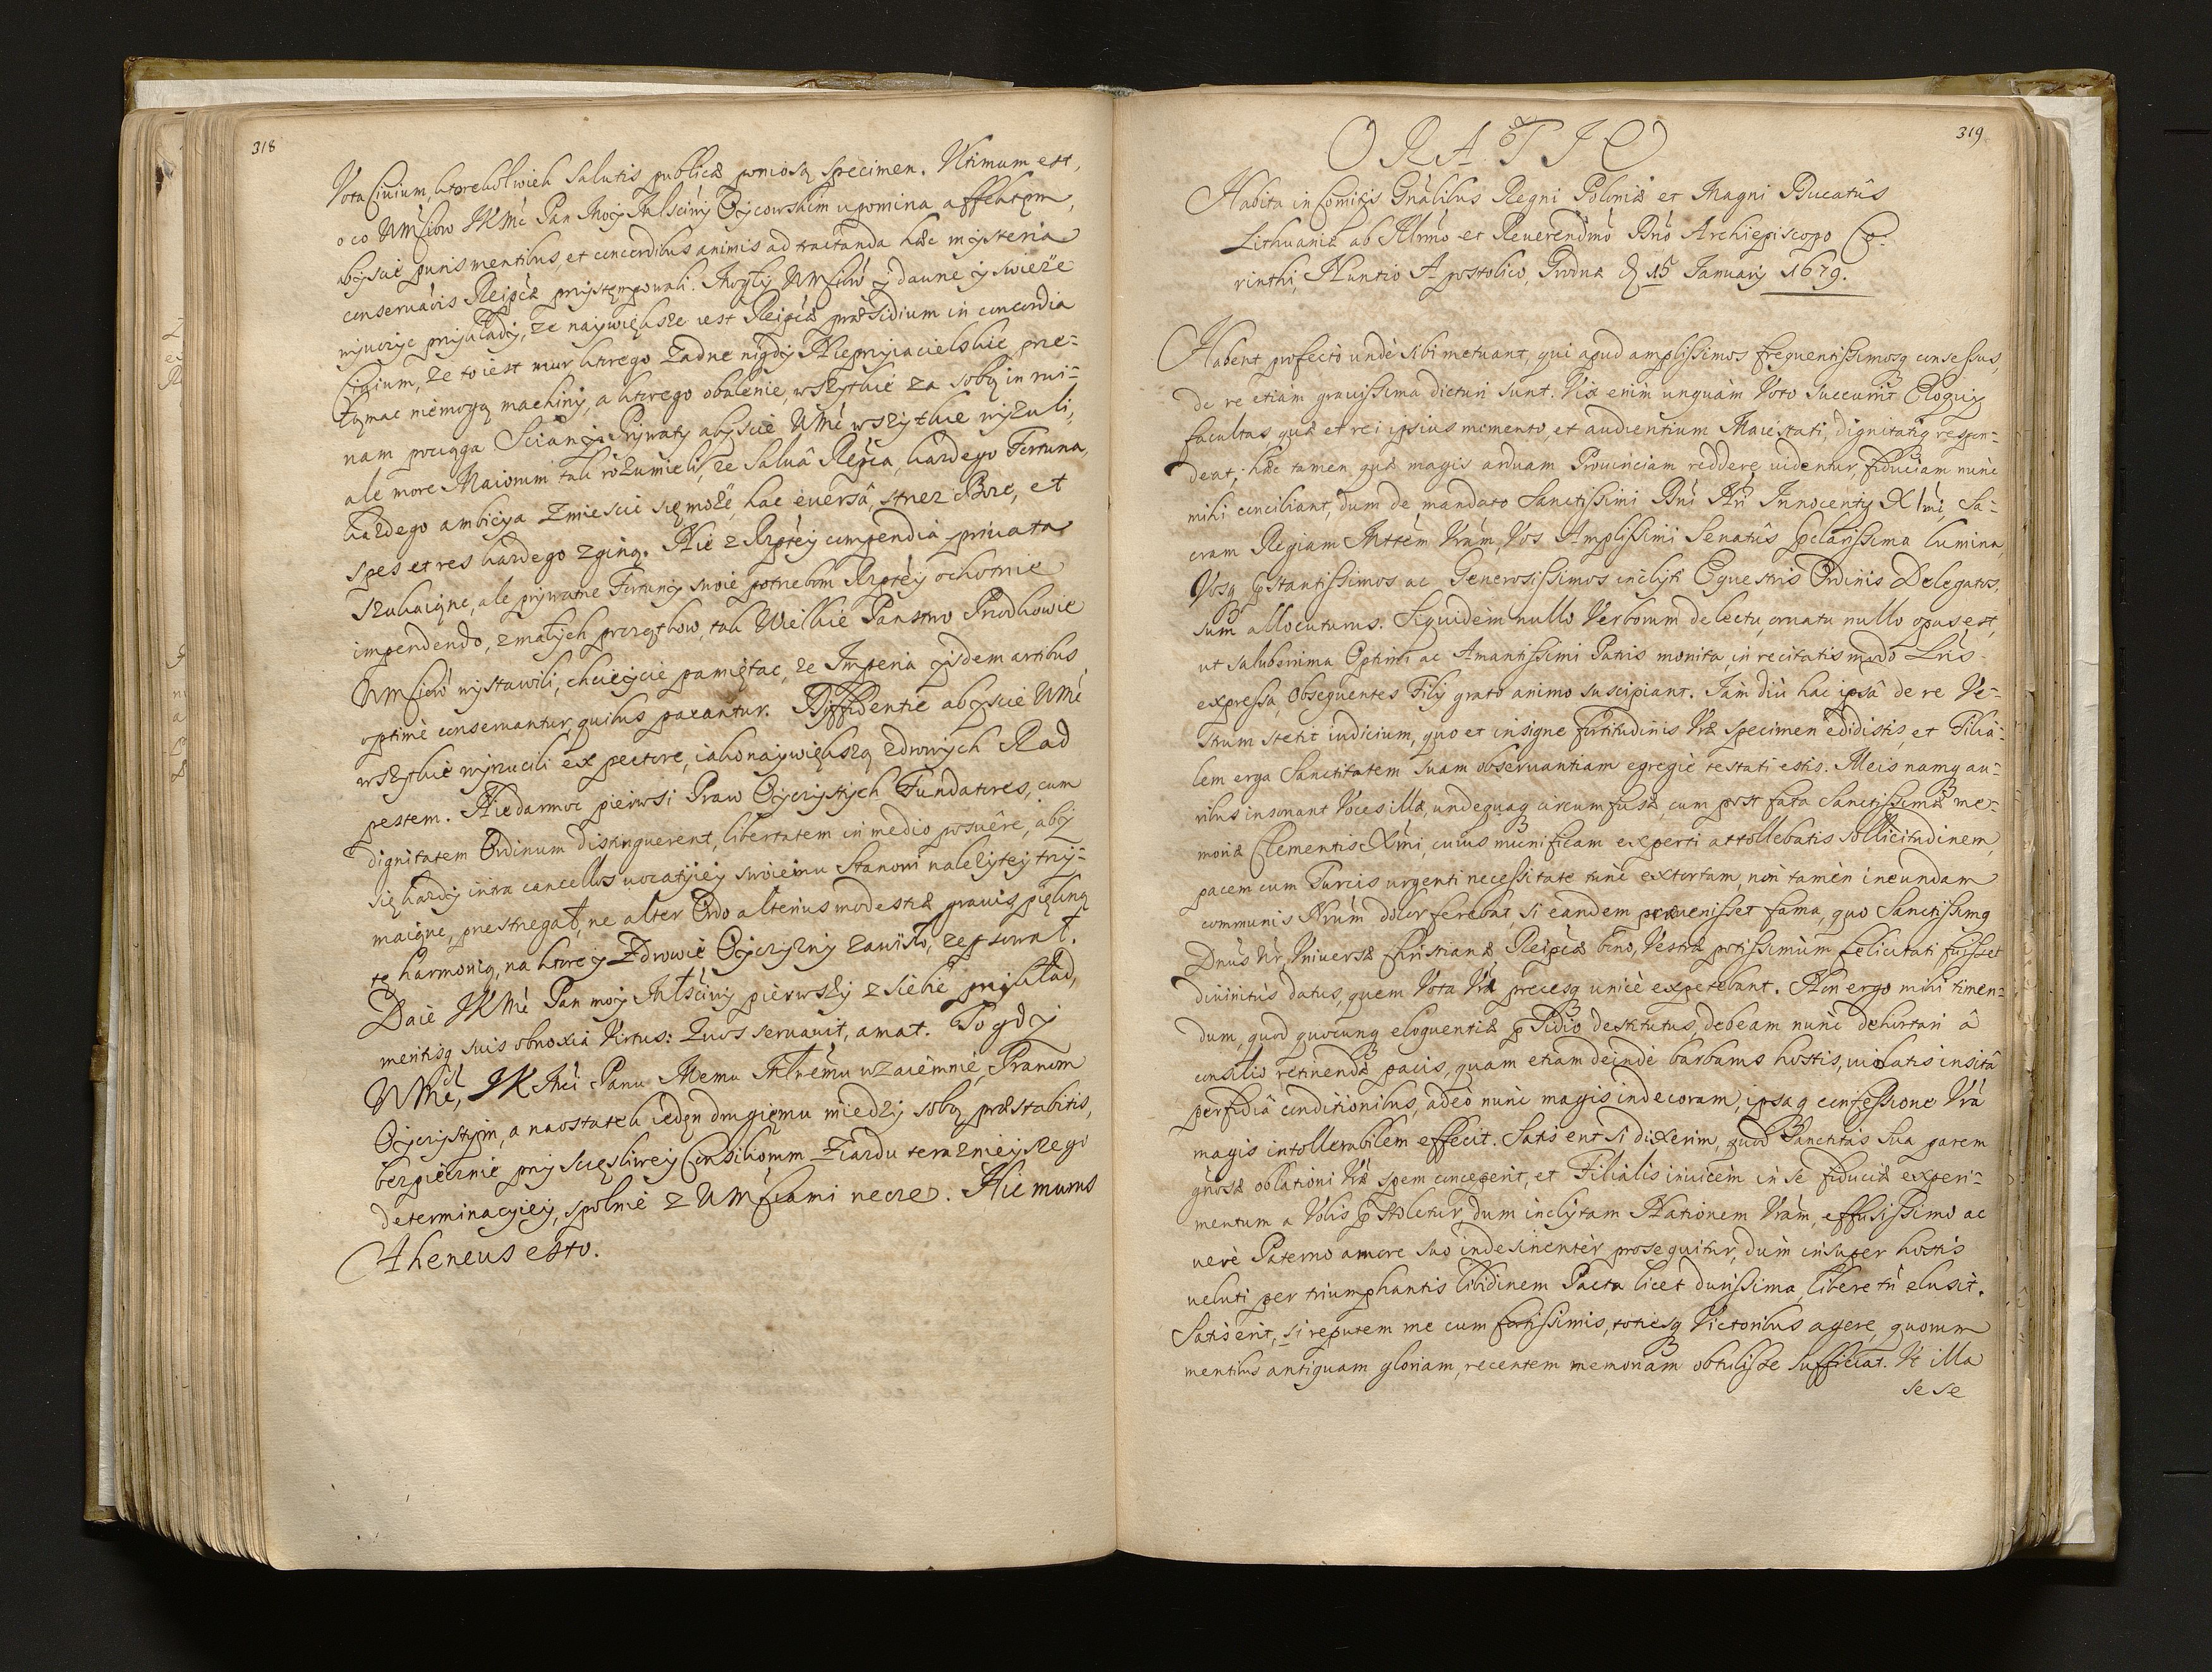 318
Vota Ciuium, ktorekolwiek Salutis publicæ poniosą specimen. Vltimum est,
o co WMsciow JKMć Pan Moÿ Młsciwÿ Oÿcowskim upomina affektem,
abÿscie puris mentibus, et concordibus animis ad tractanda hæc mÿsteria
conseruãcis Reipcæ przÿstępowali. Mogłÿ WMsciow ÿ dawne ÿ swieże
wÿuczÿc przÿkładÿ, że naÿwiększe iest Reipcæ præsidium in concordia
Ciuium, że to iest mur ktorego żadne nigdÿ Nieprzÿiacielskie prze-
łamac niemogą machinÿ, a ktorego obalenie, wszÿtkie za sobą in rui-
nam pociąga Scianÿ. Prÿwatÿ abÿscie WMć wszÿtkie wÿzuli,
ale more Maiorum tak rozumieli, że Saluâ Repca, kazdego Fortuna,
każdego ambicÿa zmiescic się może, hac euersâ, strzez Boze, et
spes et res kazdego zginą. Nie z Rzptéÿ compendia priuata
szukaiąc, ale prÿwatne Fortunÿ swoie potrzebom Rzptéÿ ochotnie
impendendo, z małÿch początkow, tak Wielkie Panstwo Przodkowie
WMsciow wÿstawili, chcieÿcie pamiętac, ze Imperia ÿisdem artibus
optimè conseruantur, quibus parantur. Diffidentie abÿscie WMć
wszÿtkie wÿrzucili ex pectore, iako naÿwiększą zdrowÿch Rad
pestem. Niedarmoc pierwsi Praw Oÿczÿstÿch Fundatores, cum
dignitatem Ordinum distinguerent, libertatem in medio posuêre, abÿ
się kazdÿ intra cancellos uocatÿieÿ swoieinu Stanowi nalezÿteÿ trzÿ-
maiąc, przestrzegał, ne alter Ordo alterius modestiæ grauis, piękną
tę harmonią, na ktoreÿ Zdrowie Oÿczÿznÿ zawisło, zepsował.
Daie JKMć Pan moÿ Młsciwÿ pierwszÿ z siebie przÿkład,
meritisq suis obnoxia Virtus: Quos seruauit, amat. To gdÿ
WMć, JK Mci Panu Memu Młnemu wzaiemnie, Prawom
Oÿczÿstÿm, a naostatek ieden drugiemu miedzÿ sobą præstabitis,
bezpiecznie przÿ sczęsliweÿ Consiliorum Ziazdu teraznieÿszego
determinacÿieÿ, spolnie z WMsciami rzecze. Hic murus
Aheneus esto.
319
ORATIO
Habita in Comitijs Gnãlibus Regni Poloniæ et Magni Ducatûs
Lithuaniæ ab Illmo et Reuerendmo Dno Archiepiscopo Co-
rinthi, Nuntio Apostolico, Grodnæ D 15 Januarij 1679.
Habent profectò undè sibi metuant, qui apud amplissimos frequentissimosq consessus,
de re etiam grauissima dicturi sunt. Vix enim unquàm Voto succurrit Eloquij
facultas quæ et rei ipsius momento, et audientium Maiestati, dignitatiq respon-
deat; hæc tamen quæ magis arduam Prouinciam reddere uidentur, fiduciam nunc
mihi conciliant, dum de mandato Sanctissimi Dni Nri Innocentij XImi, Sa-
cram Regiam Mttem Vram, Vos Amplissimi Senatûs Spclarissima lumina,
Vosq pstantissimos ac Generosissimos inclyti Equestris Ordinis Delegatos,
sum allocuturus. Siquidem nullo Verborum delectu, ornatu nullo opus est,
ut saluberrima Optimi ac Amantissimi Patris monita, in recitatis modo Lris
expressa, Obsequentes Filij grato animo suscipiant. Iàm diù hac ipsâ de re Ve-
strum stetit iudicium, quo et insigne fortitudinis Vræ specimen edidistis, et Filia-
lem erga Sanctitatem Suam obseruantiam egregiè testati estis. Meis namq au-
ribus insonant Voces illæ, undequaq circumfusæ, cum post fata Sanctissimæ me-
moriæ Clementis Xmi, cuius munificam experti attollebatis sollicitudinem,
pacem cum Turcis urgenti necessitate tunc extortam, non tamèn ineundam
communis Vrum dolor ferebat, si eandem præuenisset fama, quo Sanctissimq
Dnus Nr, Vniuersæ Christianæ Reipcæ bono, Vestræ potissimùm felicitati fuisset
diuinitùs datus, quem Vota Vra precesq unicè expetebant. Non ergo mihi timen-
dum, quod quocunq eloquentiæ psidio destitutus, debeam nunc dehortari â
consilio retinendæ pacis, quam etiam deindè barbarus hostis, uiolatis insitâ
perfidiâ conditionibus, adeò nunc magis indecoram, ipsaq confessione Vrâ
magis intollerabilem effecit. Satis erit si dixerim, quod Sanctitas Sua parem
gnosæ oblationi Vræ spem conceperit, et Filialis inuicèm in se fiduciæ experi-
mentum a Vobis pstoletur, dum inclÿtam Nationem Vram, effusissimo ac
uerè Paterno amore suo indesinentèr prosequitur, dum insuper hostis
ueluti per triumphantis libidinem Pacta licèt durissima, liberè tn elusit.
Satis erit, si reputem me cum fortissimis, totiesq Victoribus agere, quorum
mentibus antiquam gloriam, recentem memoriam obtulisse sufficiat. Vt illa
se se